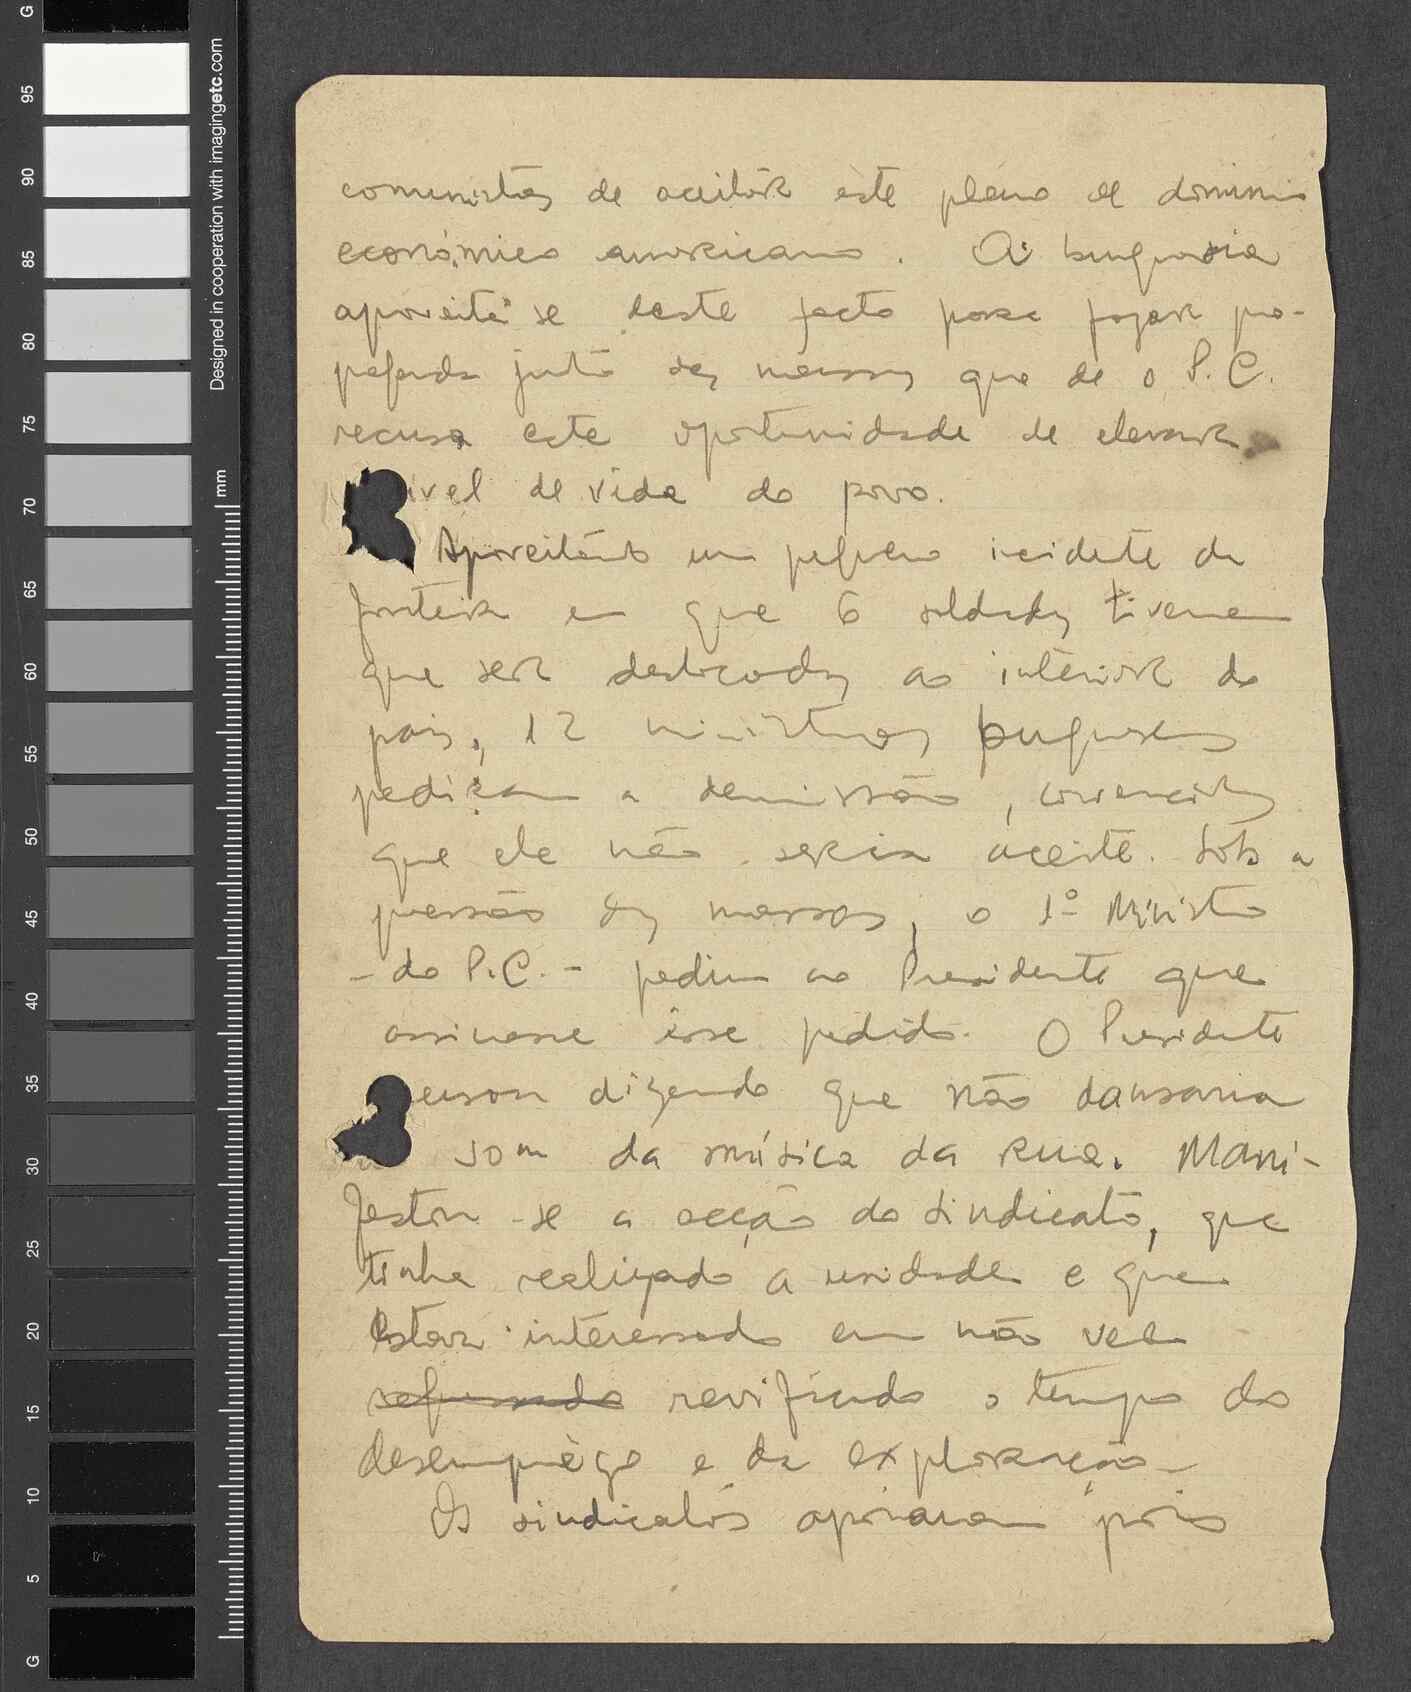 comunistas de aceitar este plano de dominio
económico americano. A burguesia
aproveita se deste facto para fazer pro-
paganda junto das massas que de o P.C.
recusa este oportunidade de elevar
ivel de vida do povo.
Aproveitando um pequeno incidente da
fronteira em que 6 soldados tiveram
que ser deslocados ao interior do
pais, 12 ministros burgueses
pediram a demissão, convencidos
que ele não seria aceite. Sob a
pressão das massas, o 1º Ministro
- do P.C. - pediu ao Presidente que
assinasse esse pedido. O Presidente
cusou dizendo que não dansaria
som da música da rua. Mani-
festou-se a acção do sindicato, que
tinha realizado a unidade e que
estava interessado em não ver
revificado o tempo do
desemprêgo e da exploração-
Os sindicatos apoiaram pois
Designed in cooperation with imagingetc.com
mm
G
95
90
85
80
75
70
65
60
55
50
45
40
35
30
25
20
15
10
5
G